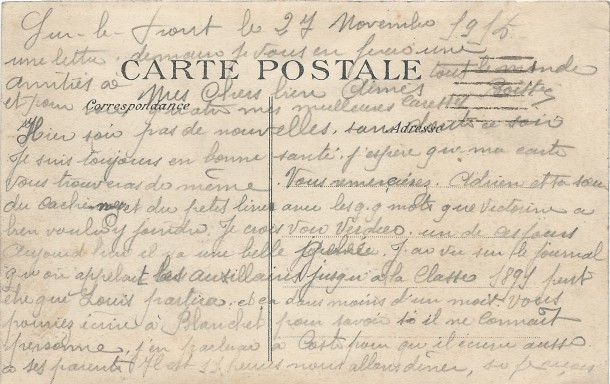 Sur-le-Front le 27 Novembre 1915
une lettre, demain je vous en ferai une
CARTE POSTALE
amitiés à tout le monde
Mes Chers bien Aimés
et pour vous quatre mes meilleures caresses
Correspondance
Adresse
Hier soir pas de nouvelles, sans doute ce soir
Je suis toujours en bonne santé, j'espère que ma carte
vous trouveras de même. Vous remercirez Adrien et ta sœur
du cache-nez et du petit livre avec les q.q mots que Victorine a
bien voulu y joindre. Je crois voir Verdier un de ces jours
Aujourd'hui il y a une belle gelée. J'ai vu sur le journal
qu'on appelait les auxillaires jusqu'à la Classe 1895 peut
être que Louis partira, et ça dans moins d'un mois. Vous
pourriez écrire à Blanchet pour savoir si il ne connaît
personne, j'en parlerai à Costo pour qu'il écrive aussi
à ses parents. Il est 11 heures nous allons dîner,